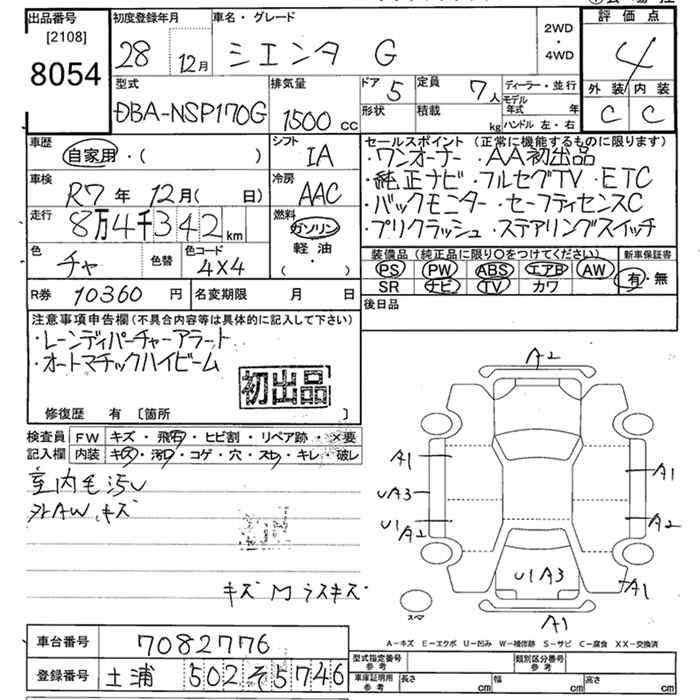 出品番号
[2108]
8054
初度登録年月
28 12月
車名・グレード
シエンタ G
2WD
・
4WD
評価点
4
外装 内装
C C
型式
DBA-NSP170G
排気量
1500 cc
ドア 5
形状
定員 7人
積載 kg
ディーラー・並行
モデル年式 年
ハンドル 左・右
車歴
自家用・( )
シフト
IA
車検
R7年 12月( 日)
冷房
AAC
走行
8万4千342 km
燃料
ガソリン
軽油
( ・ )
色
チャ
色替
色コード
4X4
R券 10360 円
名変期限 月 日
セールスポイント (正常に機能するものに限ります)
・ワンオーナー ・AA初出品
・純正ナビ・フルセグTV・ETC
・バックモニター・セーフティセンスC
・プリクラッシュ・ステアリングスイッチ
装備品 (純正品に限り○をつけてください)
新車保証書
PS PW ABS エアB AW
SR ナビ TV カワ
有・無
後日品
注意事項申告欄 (不具合内容等は具体的に記入して下さい)
・レーンディパーチャーアラート
・オートマチックハイビーム
初出品
修復歴 有 [箇所 ]
検査員
記入欄
FW キズ・飛石・ヒビ割・リペア跡・×要
内装 キズ・汚れ・コゲ・穴・スレ・キレ・破レ
室内毛汚レ
外AW、キズ
キズM ラスキズ
A2
A1
A1
UA3
U1
A2
A2
U1A3
A1
A1
スペア
A-キズ E-エクボ U-凹み W-補修跡 S-サビ C-腐食 XX-交換済
車台番号 7082776
登録番号 土浦 502 そ 5746
型式指定番号
参考
類別区分番号
参考
車庫証明用
参考
長さ cm 幅 cm 高さ cm